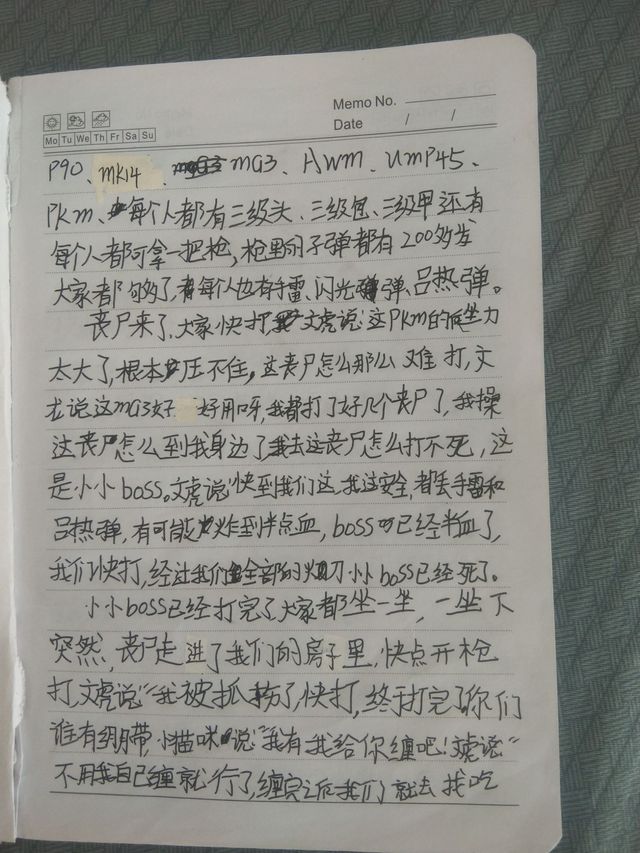 Memo No.
Mo Tu We Th Fr Sa Su
Date / /
P90、MK14、MG3、AWM、UMP45、
PKM、每个人都有三级头、三级包、三级甲还有
每个人都可拿一把枪,枪里的子弹都有200多发
大家都够了,每个人也有手雷、闪光弹、吕热弹。
丧尸来了,大家快打,文虎说:这PKM的后坐力
太大了,根本压不住,这丧尸怎么那么难打,文
龙说这MG3好好用呀,我都打了好几个丧尸了,我操
这丧尸怎么到我身边了我去这丧尸怎么打不死,这
是小小boss。文虎说"快到我们这,我这安全,都丢手雷和
吕热弹,有可能炸到半点血,boss已经半血了,
我们快打,经过我们全部的火力小小boss已经死了。
小小boss已经打完了大家都坐一坐,一坐下
突然,丧尸走进了我们的房子里,快点开枪
打,文虎说"我被抓伤了,快打,终于打完了你们
谁有绷带,小猫咪说"我有我给你缠吧!文虎说"
不用我自己缠就行了,缠完之后我们就去找吃